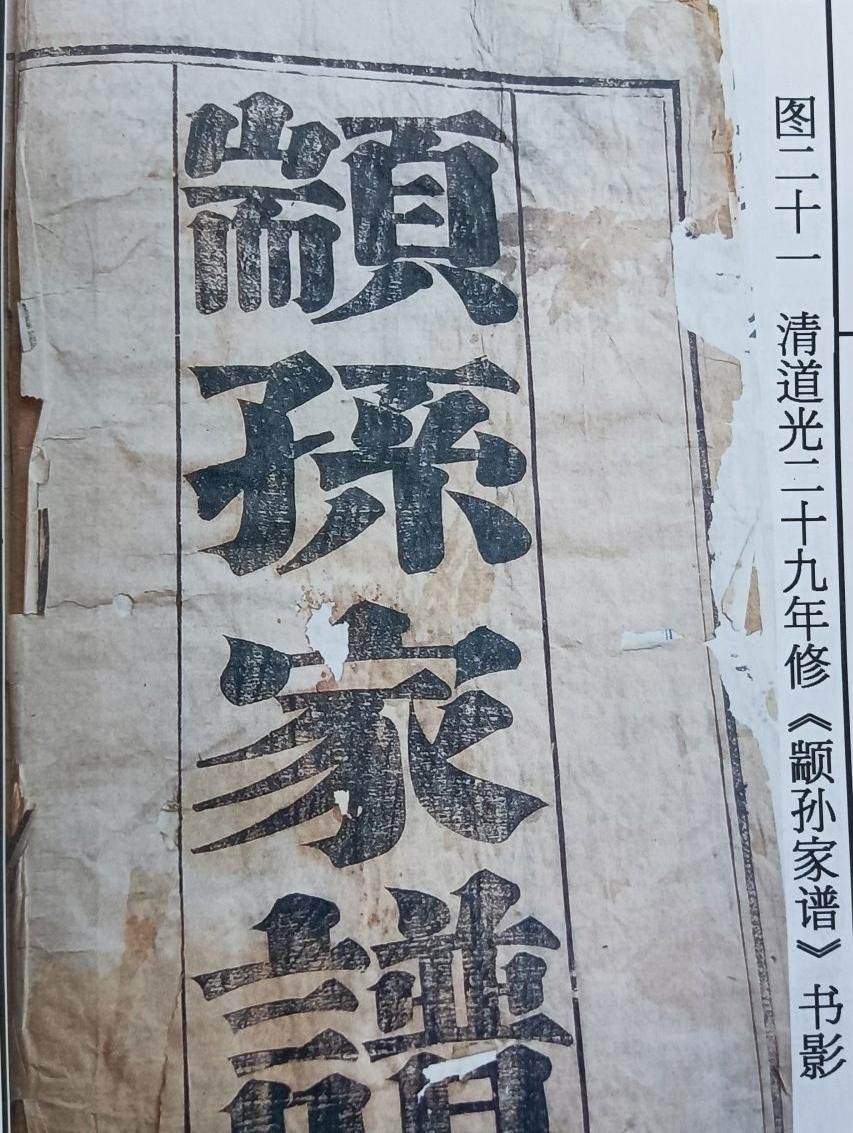 图二十一 清道光二十九年修《颛孙家谱》书影
顓孫家譜